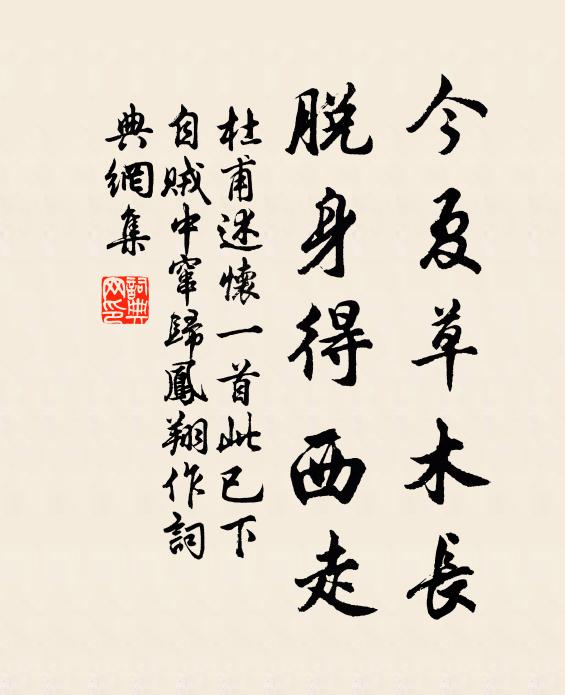 今夏草木長
脫身得西走
杜甫述懷一首此已下
自賊中竄歸鳳翔作詞
典網集
詞典
网印